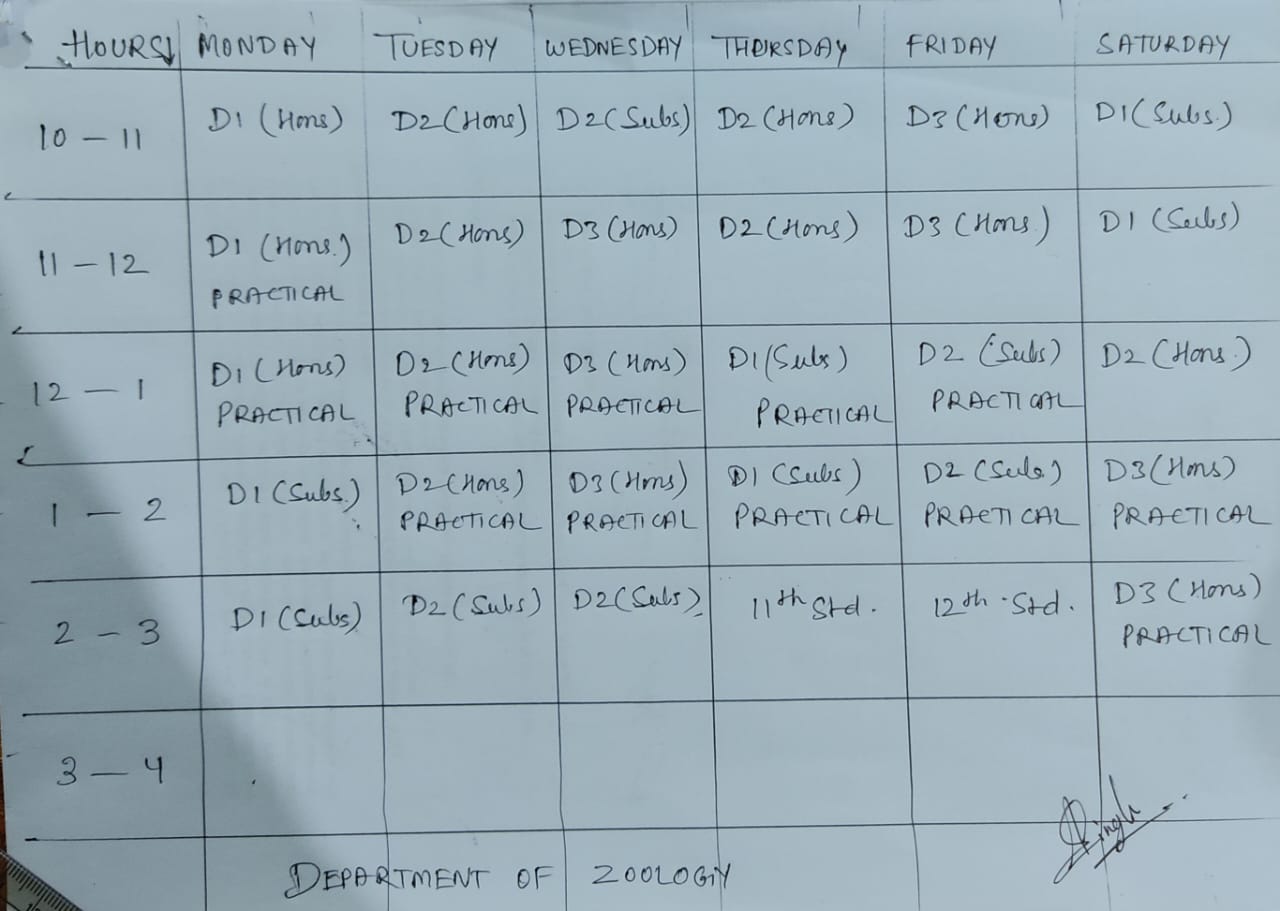 HOURS↓ MONDAY TUESDAY WEDNESDAY THURSDAY FRIDAY SATURDAY
10 – 11 D1 (Hons) D2 (Hons) D2 (Subs) D2 (Hons) D3 (Hons) D1 (Subs.)
11 – 12 D1 (Hons.) D2 (Hons) D3 (Hons) D2 (Hons) D3 (Hons) D1 (Subs)
PRACTICAL
12 – 1 D1 (Hons) D2 (Hons) D3 (Hons) D1 (Subs) D2 (Subs) D2 (Hons.)
PRACTICAL PRACTICAL PRACTICAL PRACTICAL PRACTICAL
1 – 2 D1 (Subs.) D2 (Hons) D3 (Hons) D1 (Subs) D2 (Subs) D3 (Hons)
PRACTICAL PRACTICAL PRACTICAL PRACTICAL PRACTICAL
2 – 3 D1 (Subs) D2 (Subs) D2 (Subs) 11th Std. 12th Std. D3 (Hons)
PRACTICAL
3 – 4
Singh
DEPARTMENT OF ZOOLOGY